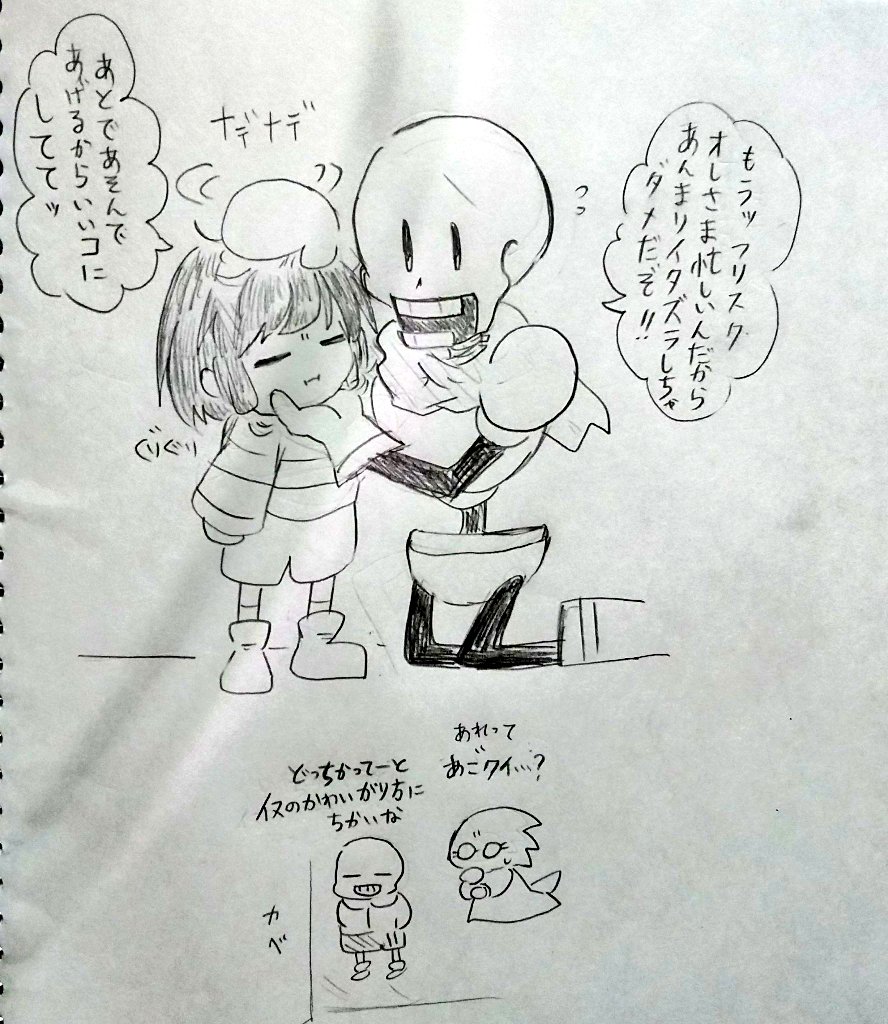 もラッ フリスク
オレさま忙しいんだから
あんまりイタズラしちゃ
ダメだぞ!!
ナデナデ
あとであそんで
あげるからいいコに
しててッ
ぐりぐり
あれって
あごクイ…?
どっちかってーと
イヌのかわいがり方に
ちかいな
カベ